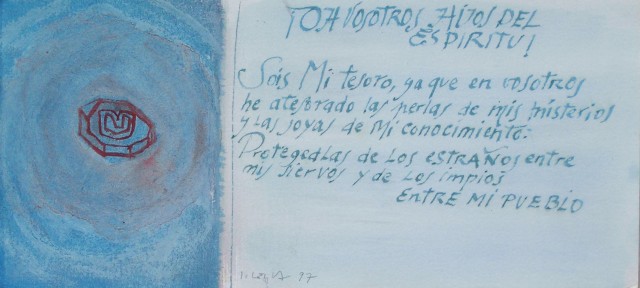 ¡OH VOSOTROS HIJOS DEL
ESPIRITU!
Sois Mi tesoro, ya que en vosotros
he atesorado las perlas de mis misterios
y las joyas de Mi conocimiento.
Protegedlas de los estraños entre
mis siervos y de los impios
ENTRE MI PUEBLO
97